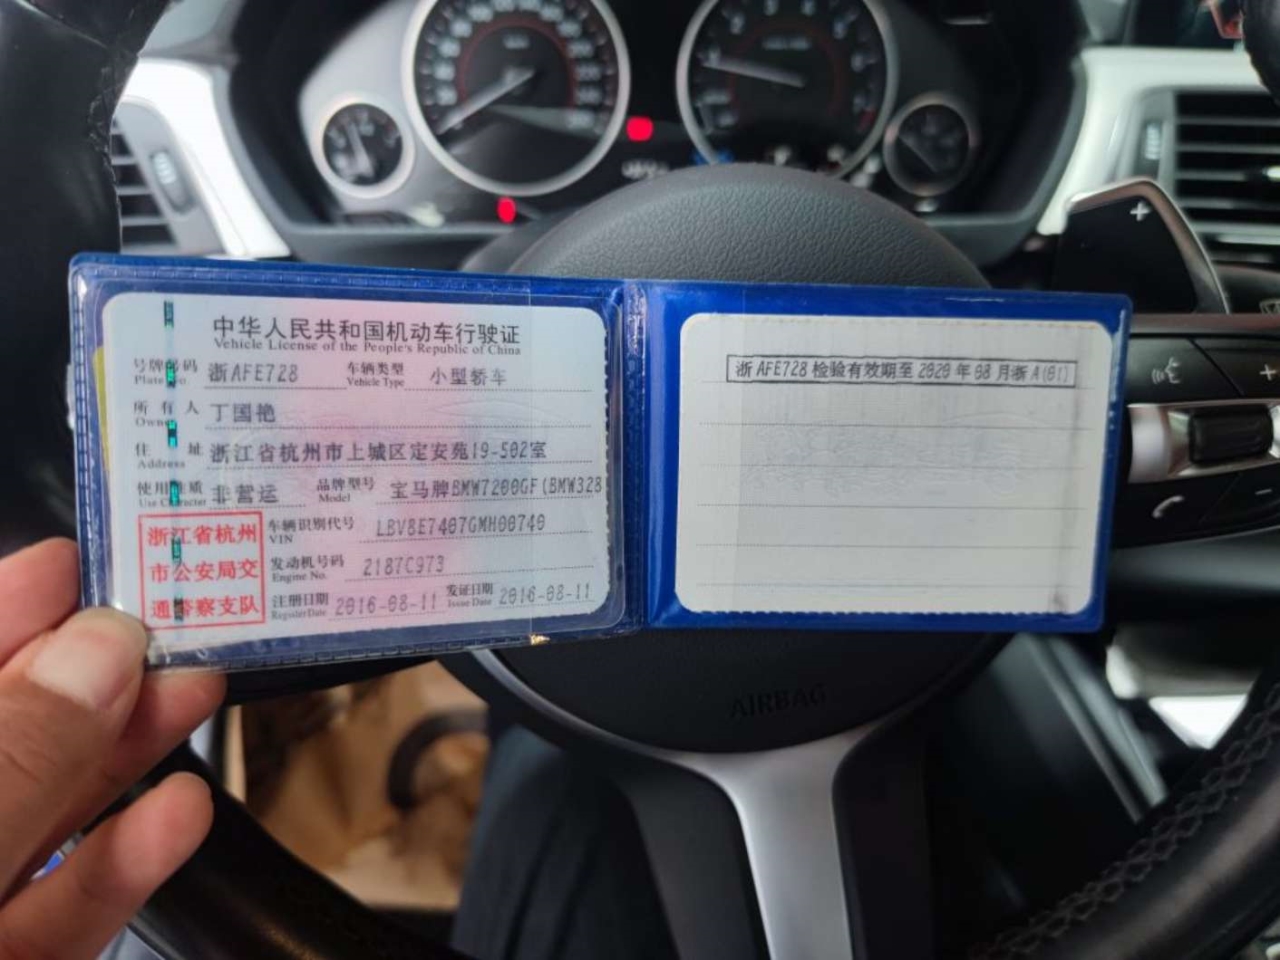 中华人民共和国机动车行驶证
Vehicle License of the People's Republic of China
号牌号码 浙AFE728 车辆类型 小型轿车
Plate No. Vehicle Type
所有人 丁国艳
Owner
住址 浙江省杭州市上城区定安苑19-502室
Address
使用性质 非营运 品牌型号 宝马牌BMW7200GF(BMW328
Use Character Model
浙江省杭州
市公安局交
通警察支队
车辆识别代号 LBV8E7407GMH00740
VIN
发动机号码 2187C973
Engine No.
注册日期 2016-08-11 发证日期 2016-08-11
Register Date Issue Date
浙AFE728 检验有效期至 2020 年 08 月浙A(01)
AIRBAG
+
+
-